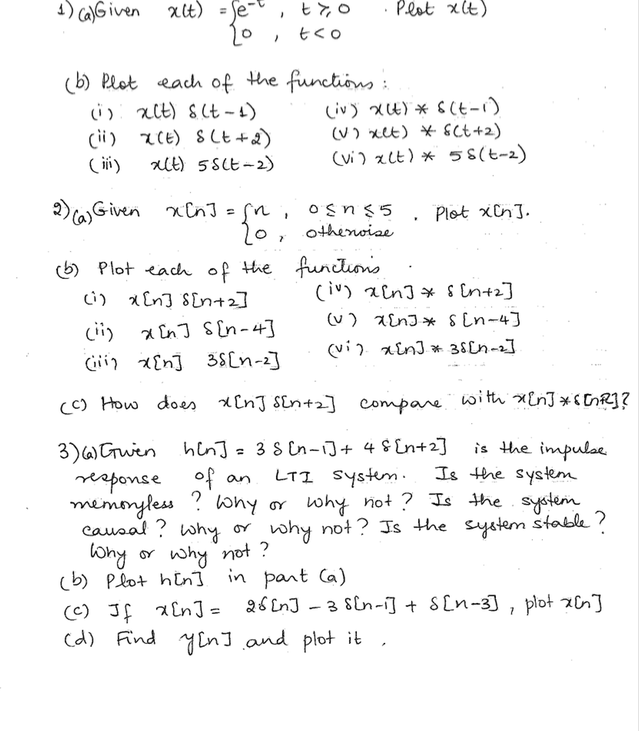 1) (a) Given x(t) = { e^-t , t ≥ 0 . Plot x(t)
{ 0 , t < 0
(b) Plot each of the functions :
(i) x(t) δ(t-1) (iv) x(t) * δ(t-1)
(ii) x(t) δ(t+2) (v) x(t) * δ(t+2)
(iii) x(t) 5δ(t-2) (vi) x(t) * 5δ(t-2)
2) (a) Given x[n] = { n , 0 ≤ n ≤ 5 . Plot x[n].
{ 0 , otherwise
(b) Plot each of the functions .
(i) x[n] δ[n+2] (iv) x[n] * δ[n+2]
(ii) x[n] δ[n-4] (v) x[n] * δ[n-4]
(iii) x[n] 3δ[n-2] (vi) x[n] * 3δ[n-2]
(c) How does x[n] δ[n+2] compare with x[n] * δ[n+2]?
3) (a) Given h[n] = 3 δ[n-1] + 4 δ[n+2] is the impulse
response of an LTI system. Is the system
memoryless ? Why or why not ? Is the system
causal ? Why or why not ? Is the system stable ?
Why or why not ?
(b) Plot h[n] in part (a)
(c) If x[n] = 2δ[n] - 3 δ[n-1] + δ[n-3] , plot x[n]
(d) Find y[n] and plot it .